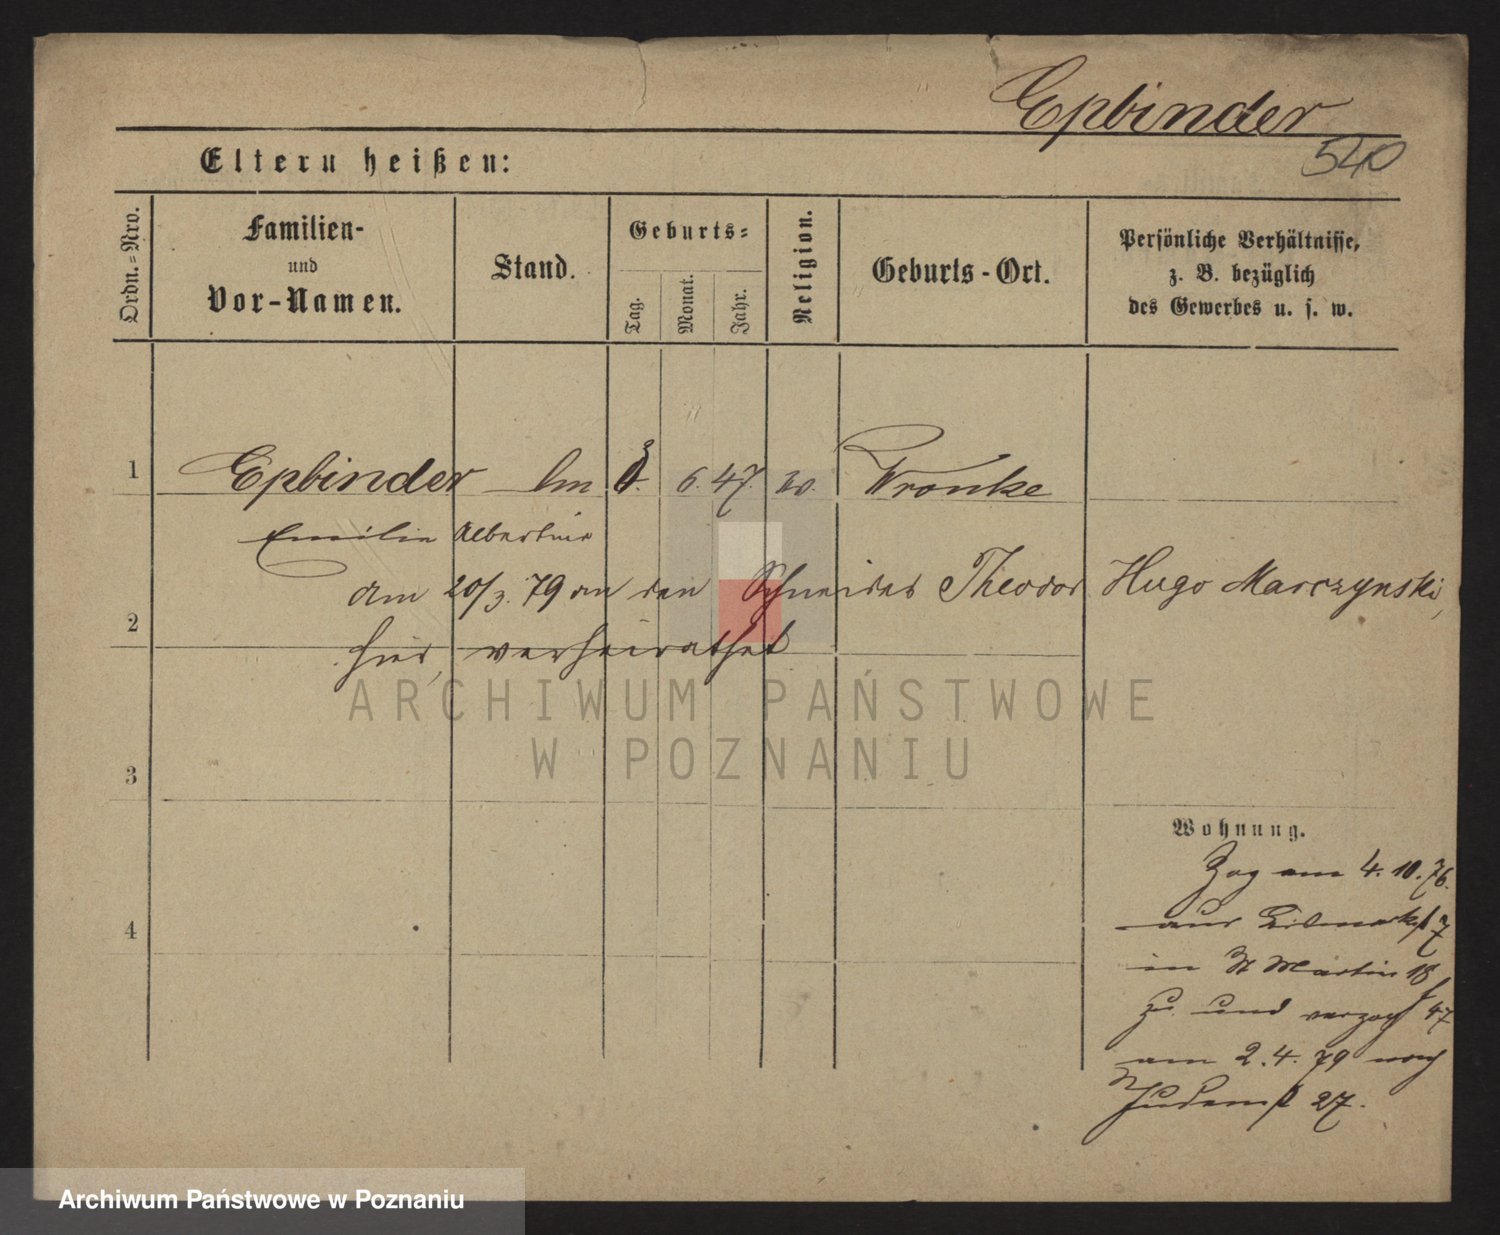 Epbinder
540
Eltern heißen:
Ordn.-Nro.
Familien-
und
Vor-Namen.
Stand.
Geburts-
Tag.
Monat.
Jahr.
Religion.
Geburts-Ort.
Persönliche Verhältnisse,
z. B. bezüglich
des Gewerbes u. s. w.
1 Epbinder 3. 6. 47. Wronke
Emilie Albertine
am 20/3. 79 an den Schneider Theodor Hugo Marczynski,
2
hier, verheirathet
ARCHIWUM PAŃSTWOWE
W POZNANIU
3
Wohnung.
Zog am 4. 10. 76.
aus 7
4
in St Martin 18
zu und verzog 47
am 2. 4. 79 nach
Judenst 27.
Archiwum Państwowe w Poznaniu